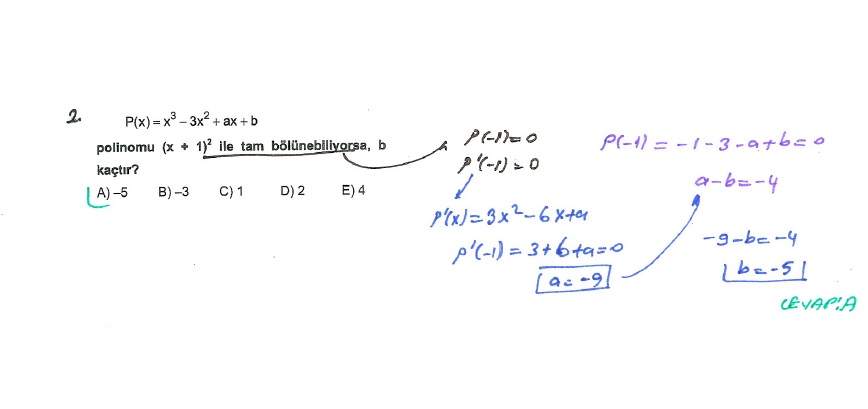 2.
P(x) = x³ – 3x² + ax + b
polinomu (x + 1)² ile tam bölünebiliyorsa, b
kaçtır?
A) –5 B) –3 C) 1 D) 2 E) 4
P(-1)=0
P'(-1)=0
P'(x)=3x²-6x+a
P'(-1)=3+6+a=0
a=-9
P(-1)=-1-3-a+b=0
a-b=-4
-9-b=-4
b=-5
CEVAP:A